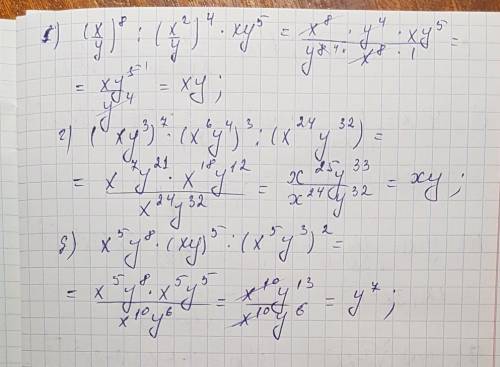 в) (x/y)^8 : (x^2/y)^4 · xy^5 = (x^8 · y^4 · xy^5)/(y^8 4 · x^8 · 1) =
= xy^5 1/y^4 = xy ;
г) (xy^3)^7 · (x^6y^4)^3 : (x^24 y^32) =
= (x^7y^21 · x^18y^12)/(x^24y^32) = (x^25y^33)/(x^24y^32) = xy ;
д) x^5y^8 · (xy)^5 : (x^5y^3)^2 =
= (x^5y^8 · x^5y^5)/(x^10y^6) = (x^10y^13)/(x^10y^6) = y^7 ;